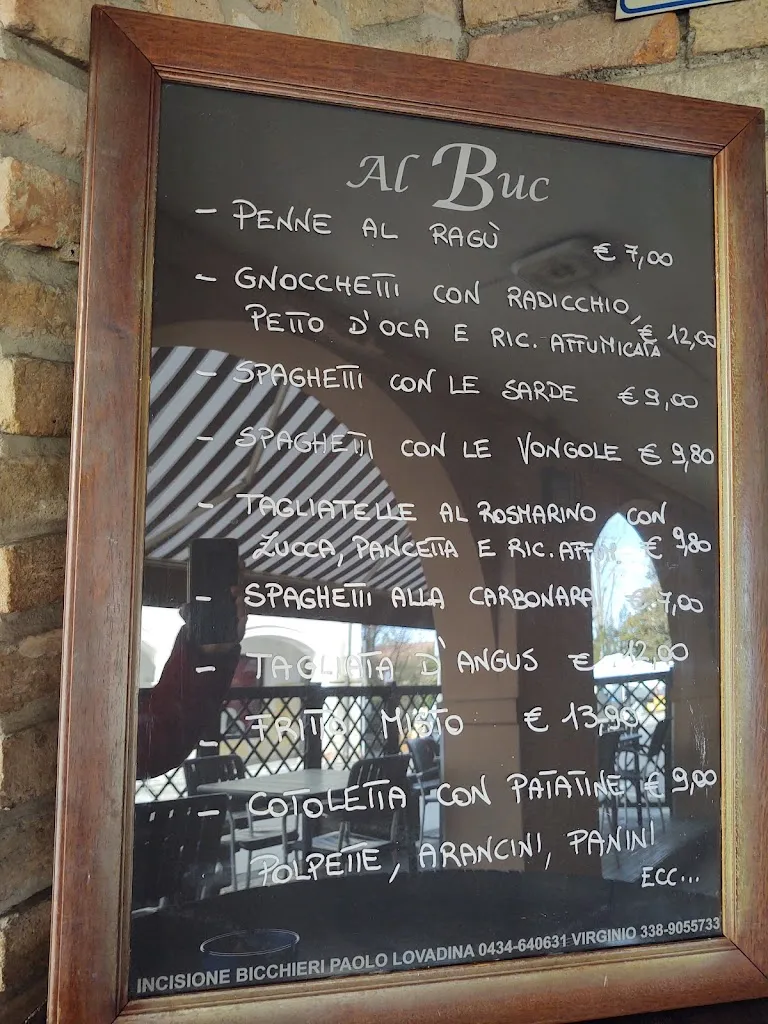 Al Buc
- PENNE AL RAGÙ € 7,00
- GNOCCHETTI CON RADICCHIO,
PETTO D'OCA E RIC. AFFUMICATA € 12,00
- SPAGHETTI CON LE SARDE € 9,00
- SPAGHETTI CON LE VONGOLE € 9,80
- TAGLIATELLE AL ROSMARINO CON
ZUCCA, PANCETTA E RIC. € 9,80
- SPAGHETTI ALLA CARBONARA € 7,00
- TAGLIATA D'ANGUS € 12,00
- FRITTO MISTO € 13,90
- COTOLETTA CON PATATINE € 9,00
POLPETTE, ARANCINI, PANINI
ECC...
INCISIONE BICCHIERI PAOLO LOVADINA 0434-640631 VIRGINIO 338-9055733